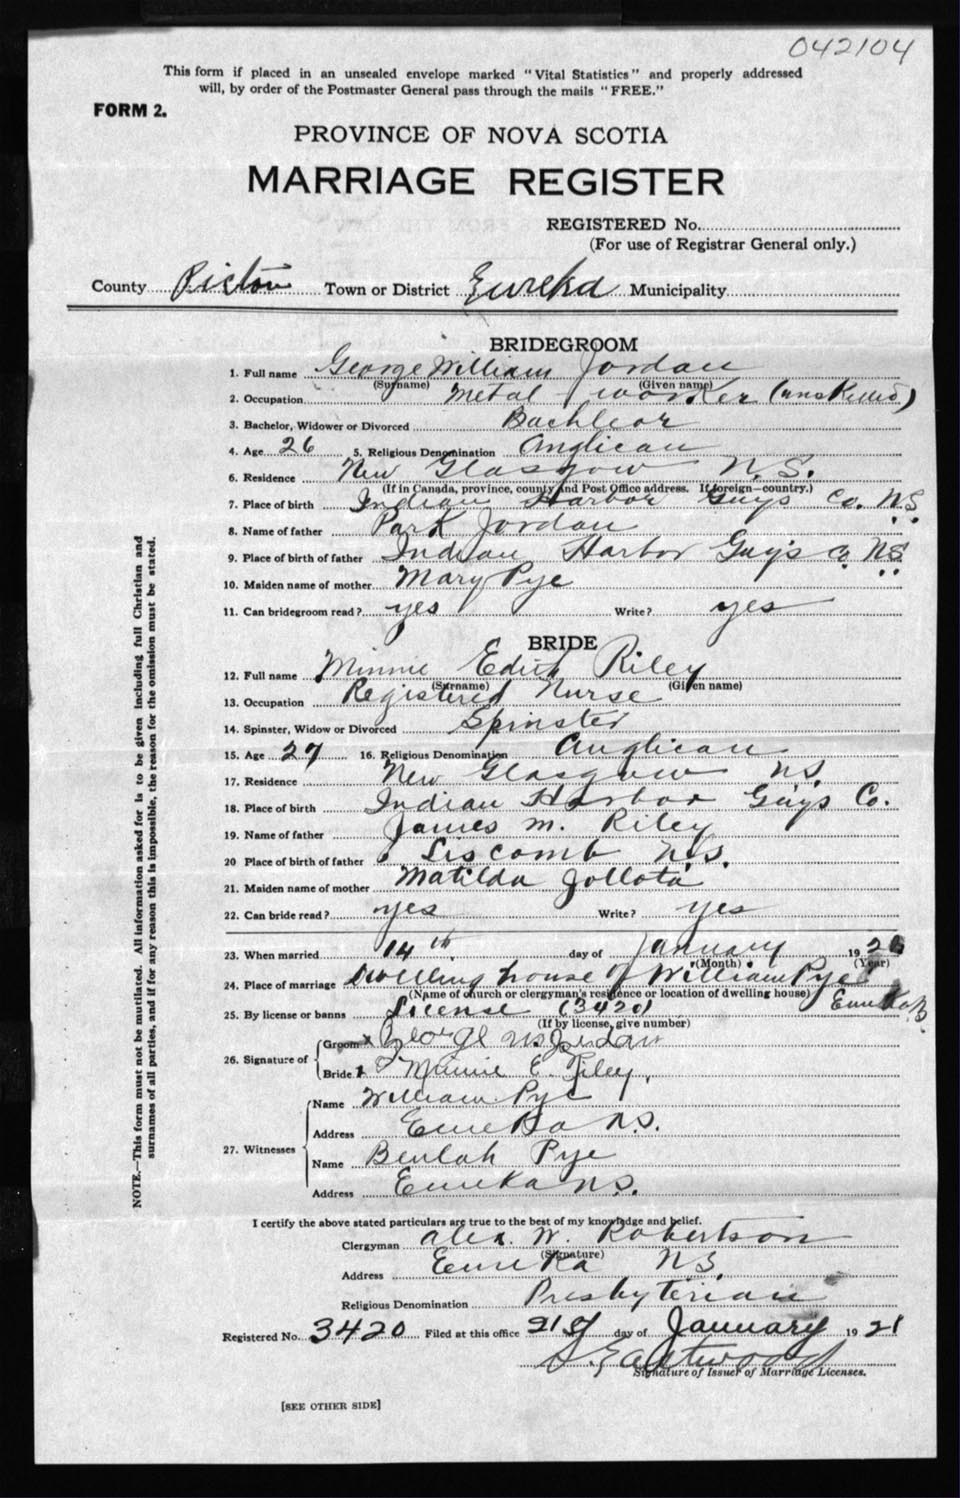 042104
This form if placed in an unsealed envelope marked "Vital Statistics" and properly addressed
will, by order of the Postmaster General pass through the mails "FREE."
FORM 2.
PROVINCE OF NOVA SCOTIA
MARRIAGE REGISTER
REGISTERED No.
(For use of Registrar General only.)
County Pictou Town or District Eureka Municipality
BRIDEGROOM
1. Full name George William Jordan
(Surname) (Given name)
2. Occupation Metal worker (unskilled)
3. Bachelor, Widower or Divorced Bachleor
4. Age 26 5. Religious Denomination Anglican
6. Residence New Glasgow N.S.
(If in Canada, province, county and Post Office address. If foreign—country.)
7. Place of birth Indian Harbor Guys Co. N.S.
8. Name of father Park Jordan
9. Place of birth of father Indian Harbor Guys Co N.S.
10. Maiden name of mother Mary Pye
11. Can bridegroom read? yes Write? yes
BRIDE
12. Full name Minnie Edith Riley
(Surname) (Given name)
13. Occupation Registered Nurse
14. Spinster, Widow or Divorced Spinster
15. Age 27 16. Religious Denomination Anglican
17. Residence New Glasgow N.S.
18. Place of birth Indian Harbor Guys Co.
19. Name of father James M. Riley
20 Place of birth of father Liscomb N.S.
21. Maiden name of mother Matilda
22. Can bride read? yes Write? yes
23. When married 14th day of January 19
(Month) (Year)
24. Place of marriage Dwelling house of William Pye
(Name of church or clergyman's residence or location of dwelling house) Eureka
25. By license or banns License (3420)
(If by license, give number)
26. Signature of
Groom George W Jordan
Bride Minnie E. Riley
27. Witnesses
Name William Pye
Address Eureka N.S.
Name Beulah Pye
Address Eureka N.S.
I certify the above stated particulars are true to the best of my knowledge and belief.
Clergyman Alex. W. Robertson
(Signature)
Address Eureka N.S.
Religious Denomination Presbyterian
Registered No. 3420 Filed at this office 21st day of January 19 21
Eastwood
Signature of Issuer of Marriage Licenses.
[SEE OTHER SIDE]
NOTE.—This form must not be mutilated. All information asked for is to be given including full Christian and
surnames of all parties, and if for any reason this is impossible, the reason for the omission must be stated.